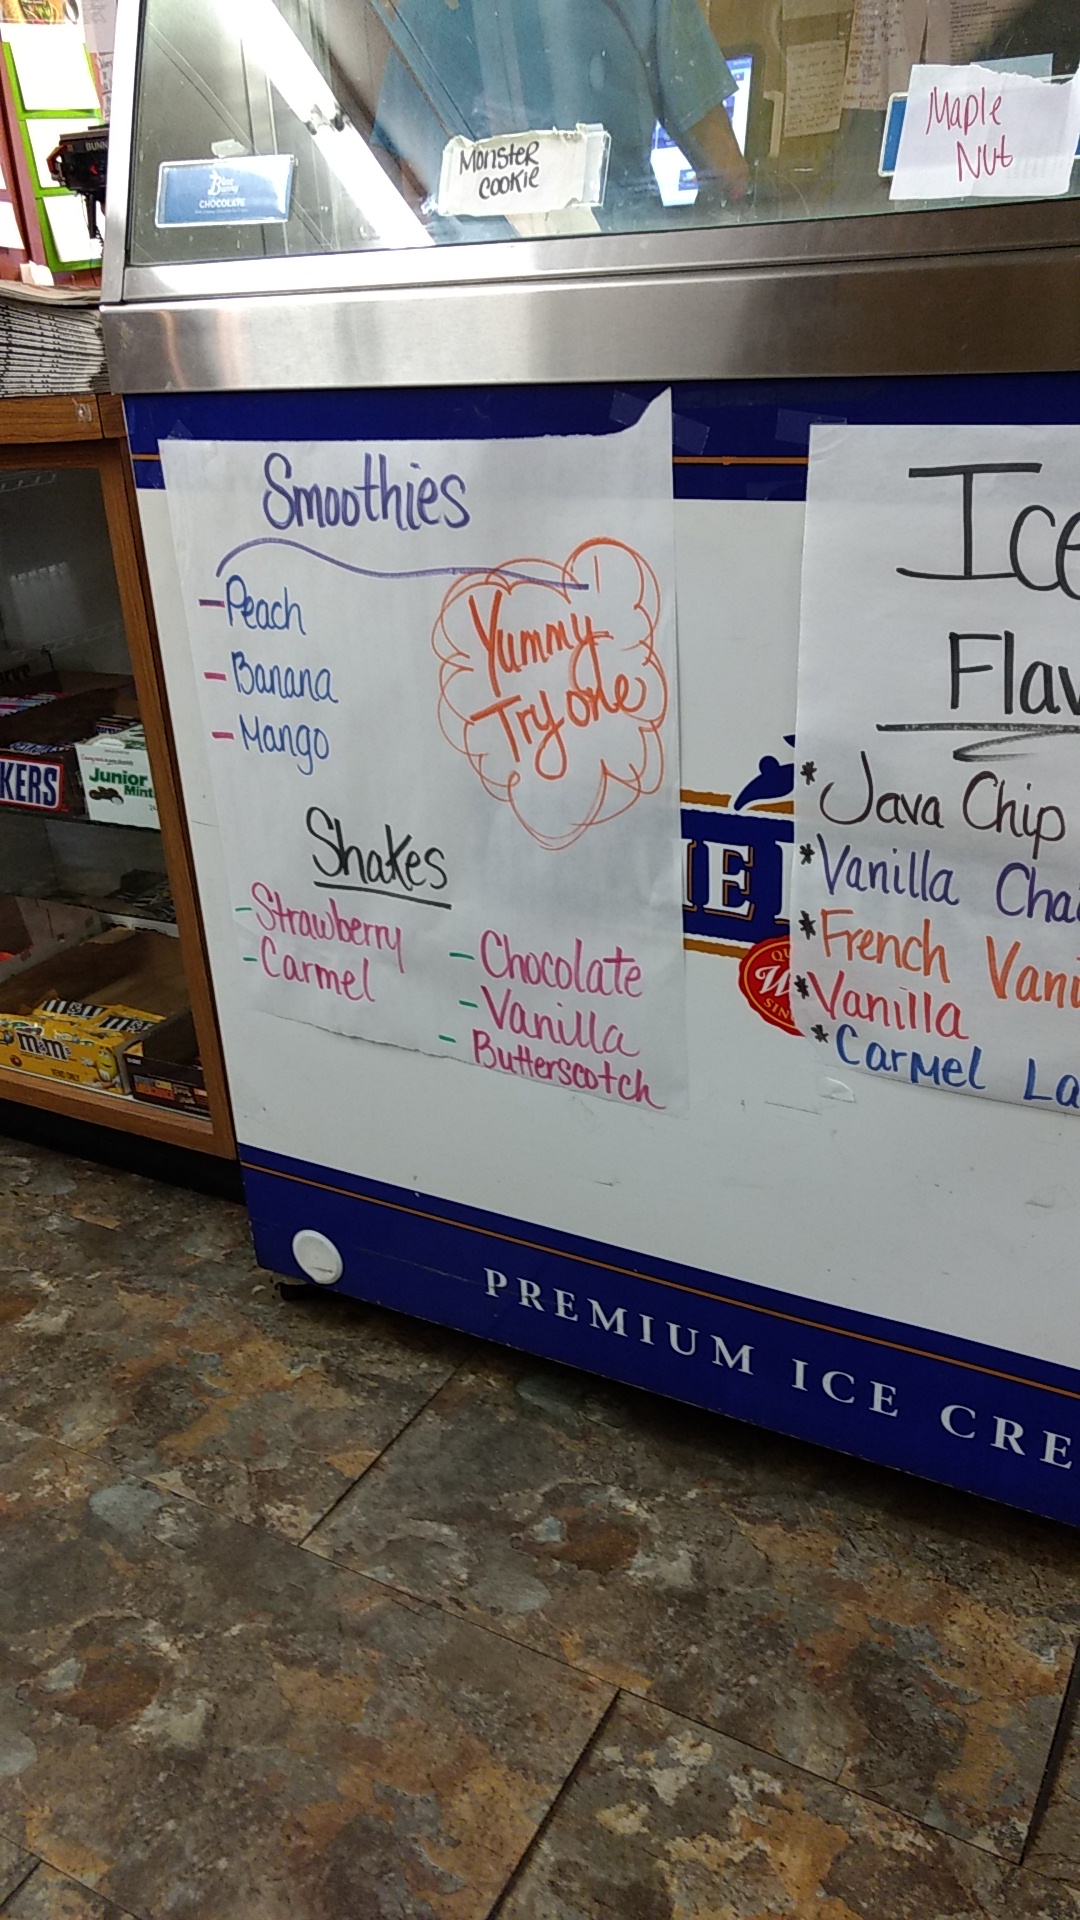 BUNN
Blue Bunny
CHOCOLATE
Monster
Cookie
Maple
Nut
Smoothies
-Peach
-Banana
-Mango
Yummy
Try one
Shakes
-Strawberry
-Carmel
-Chocolate
-Vanilla
-Butterscotch
Ice
Flav
*Java Chip
*Vanilla Cha
*French Vani
*Vanilla
*Carmel La
KERS
Junior
Mint
m&m's
IE
W
SIN
PREMIUM ICE CRE